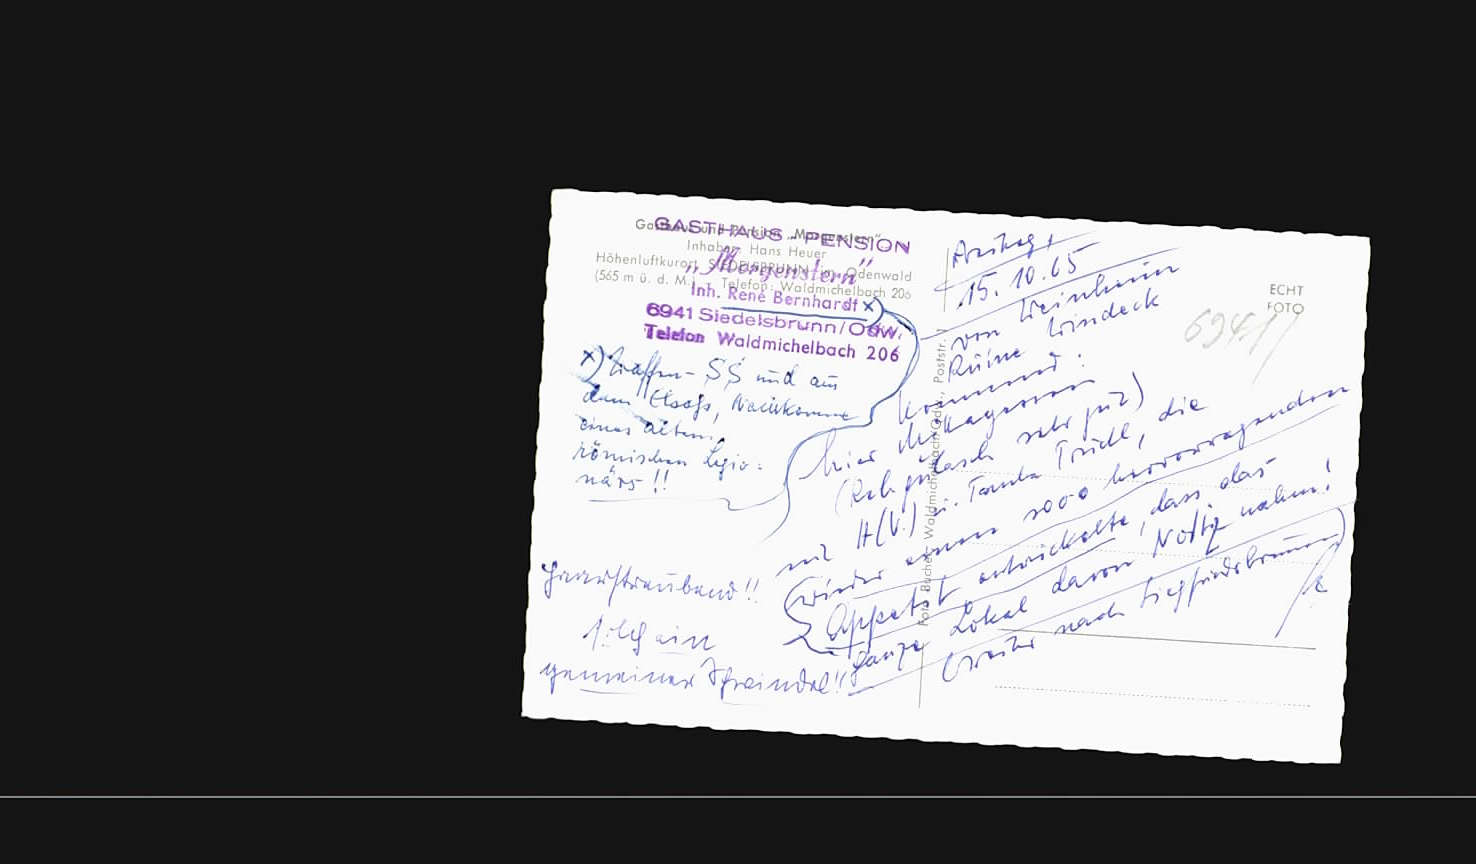 Gasthaus und Pension „Morgenstern"
Inhaber: Hans Heuer
Höhenluftkurort SIEDELSBRUNN im Odenwald
(565 m ü. d. M.) Telefon: Waldmichelbach 206
GASTHAUS - PENSION
„Morgenstern"
Inh. René Bernhardt x)
6941 Siedelsbrunn/Odw.
Telefon Waldmichelbach 206
x) Waffen-SS und aus
dem Elsass, Nachkomme
eines alten,
römischen Legio=
närs!!
ein
gemeiner
Foto Bucher Waldmichelbach/Odw., Poststr.
ECHT
FOTO
6941
Freitag,
15.10.65
von Weinheim
Ruine Windeck
kommend:
hier Mittagessen
(Rehgulasch sehr gut)
mit H(V.) u. Tante Trudl, die
(wieder einen sooo hervorragenden
Appetit entwickelte, dass das
ganze Lokal davon Notiz nahm!
(weiter nach Siegfriedsbrunnen)